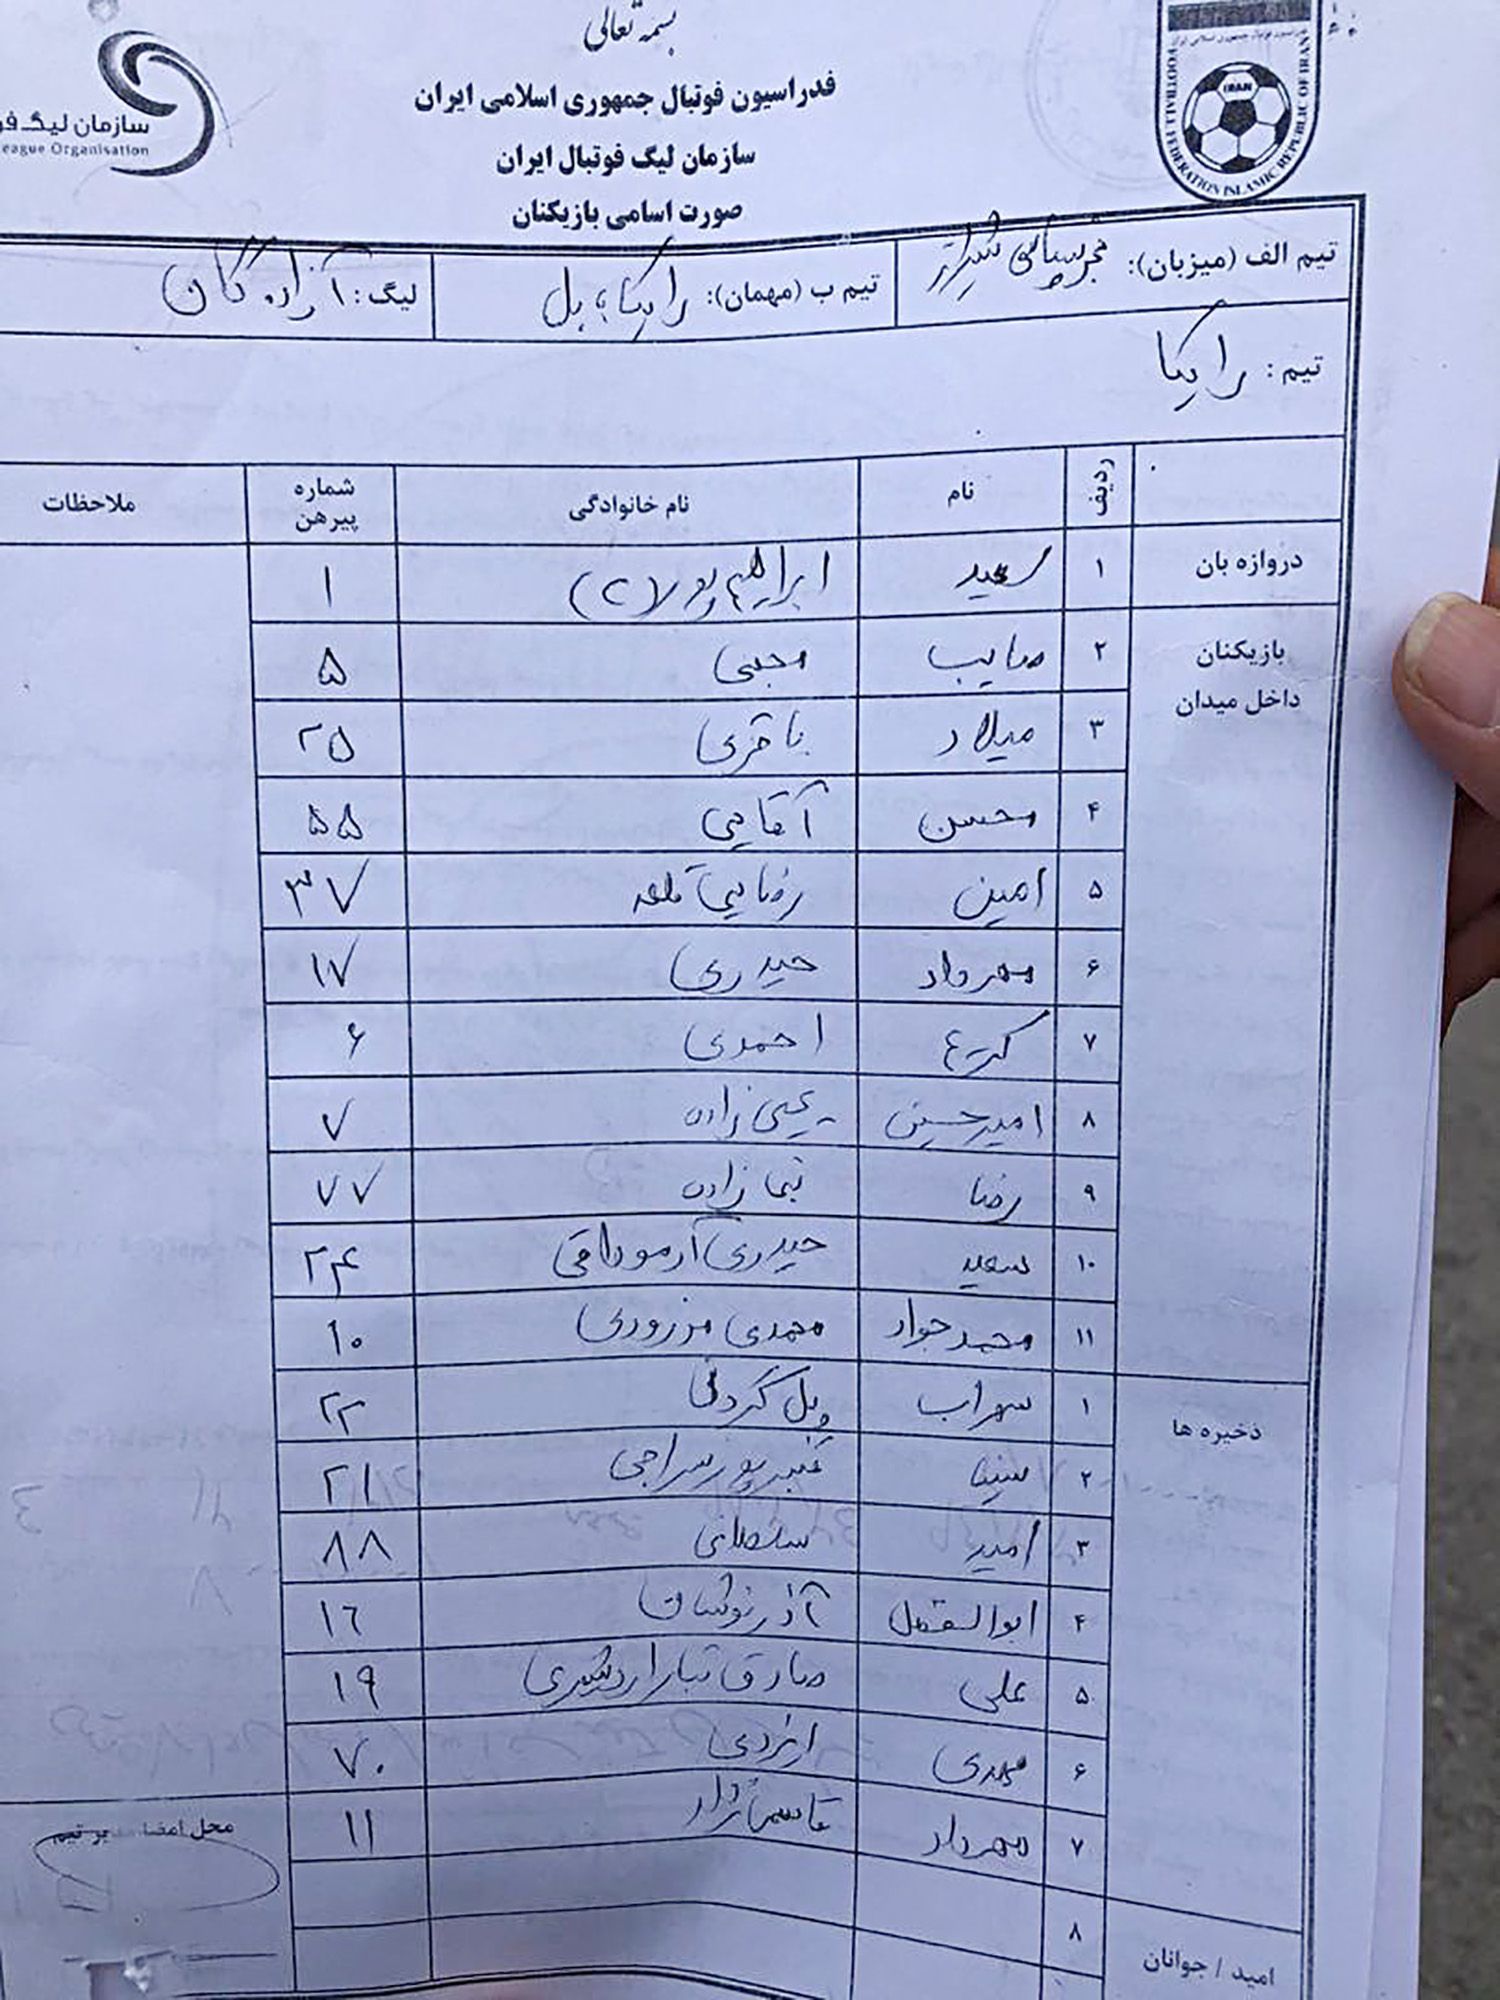 بسمه تعالی
فدراسیون فوتبال جمهوری اسلامی ایران
سازمان لیگ فوتبال ایران
صورت اسامی بازیکنان
سازمان لیگ فو
eague Organisation
IRAN
FOOTBALL FEDERATION ISLAMIC REPUBLIC OF IRAN
تیم الف (میزبان): فجر سپاسی شیراز تیم ب (مهمان): رایکا بابل لیگ: آزادگان
تیم: رایکا
ردیف نام نام خانوادگی شماره پیرهن ملاحظات
دروازه بان ۱ سعید ابراهیم پور (C) ۱
بازیکنان داخل میدان ۲ صایب محبی ۵
۳ میلاد باقری ۲۵
۴ محسن آقایی ۵۵
۵ امین رضایی قلعه ۳۷
۶ مهرداد حیدری ۱۷
۷ احمدی ۶
۸ امیرحسین یحیی زاده ۷
۹ رضا نبی زاده ۷۷
۱۰ سعید حیدری ۲۴
۱۱ محمدجواد محمدی مزرودی ۱۰
ذخیره ها ۱ سهراب پل گردنی ۲۲
۲ سینا قنبرپور سراجی ۲۱
۳ امیر سلطانی ۸۸
۴ ابوالفضل آذرنوشان ۱۶
۵ علی صادق تبار اردشیری ۱۹
۶ مهدی ایزدی ۷۰
۷ مهرداد قاسم نژاد ۱۱
۸
امید / جوانان
محل امضا بر تیم